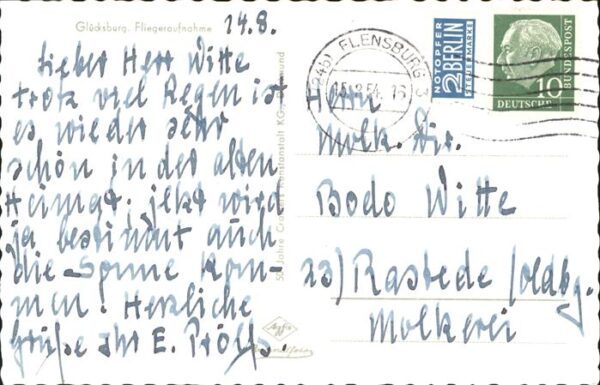 Glücksburg. Fliegeraufnahme
14.8.
Lieber Herr Witte
trotz viel Regen ist
es wieder sehr
schön in der alten
Heimat, jetzt wird
ja bestimmt auch
die Sonne kom-
men! Herzliche
Grüße Ihr E.
50 Jahre Kunstanstalt KG
Agfa
(24b) FLENSBURG
54
NOTOPFER
2 BERLIN
STEUERMARKE
10
DEUTSCHE
BUNDESPOST
Herrn
Molk. Dir.
Bodo Witte
23) Rastede /Oldbg.
Molkerei